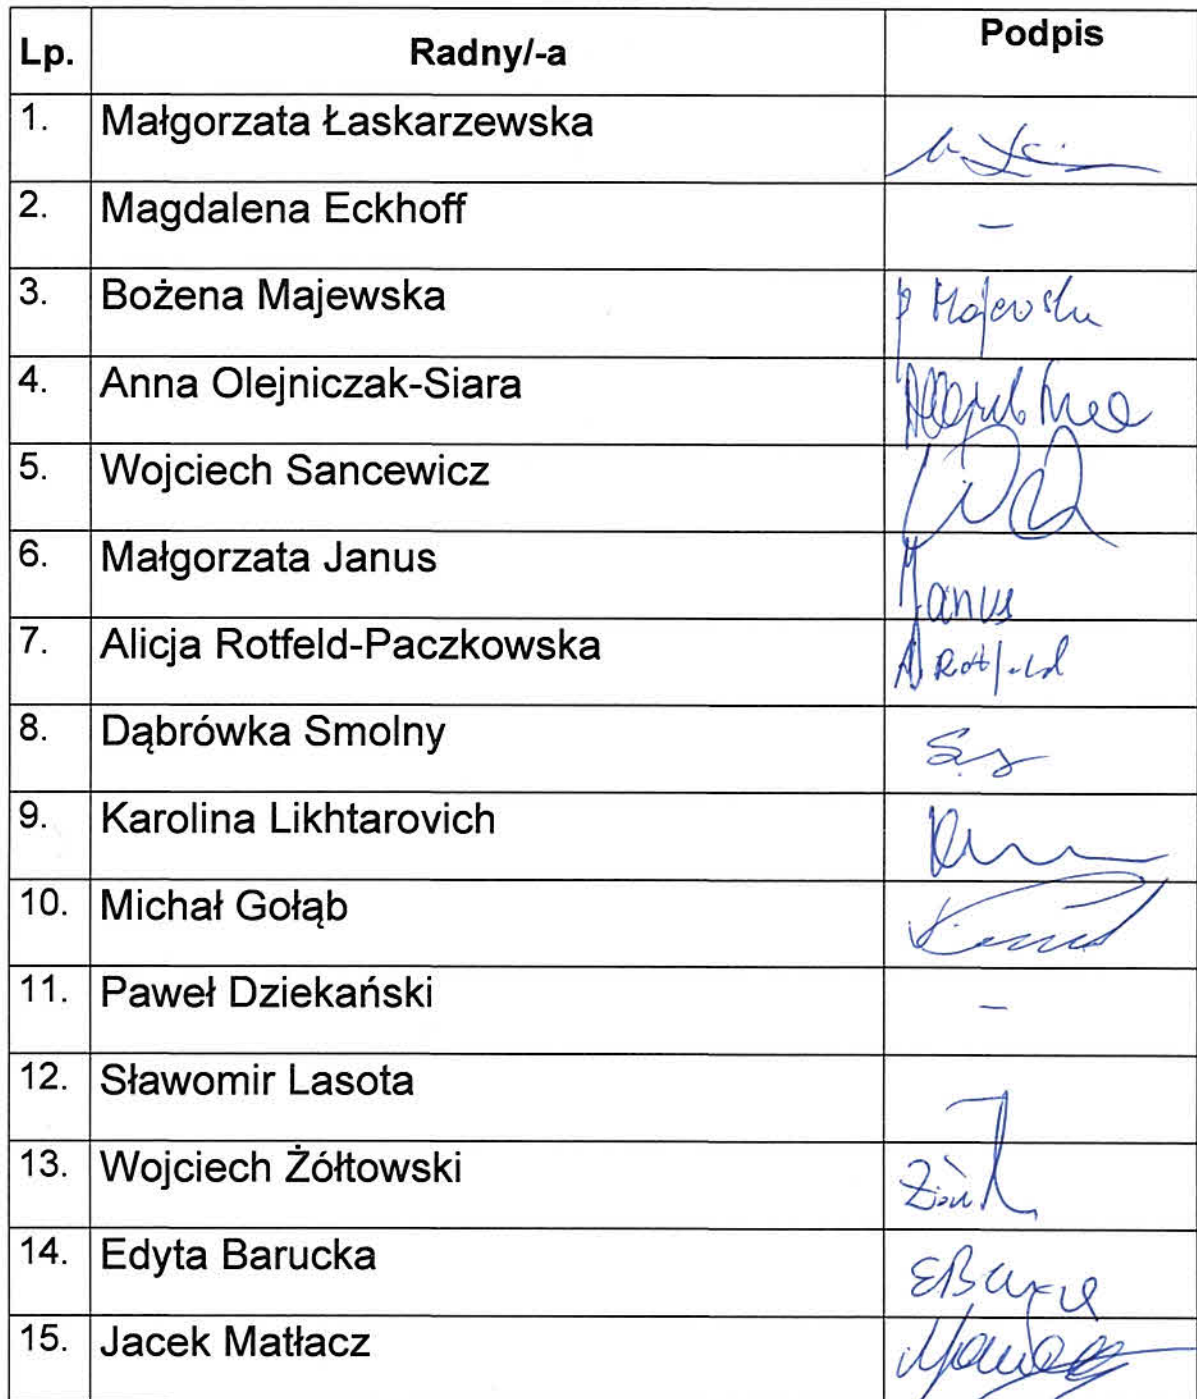 Lp. Radny/-a Podpis
1. Małgorzata Łaskarzewska
2. Magdalena Eckhoff –
3. Bożena Majewska Majewska
4. Anna Olejniczak-Siara
5. Wojciech Sancewicz
6. Małgorzata Janus Janus
7. Alicja Rotfeld-Paczkowska A Rotfeld
8. Dąbrówka Smolny
9. Karolina Likhtarovich
10. Michał Gołąb
11. Paweł Dziekański –
12. Sławomir Lasota
13. Wojciech Żółtowski
14. Edyta Barucka
15. Jacek Matłacz